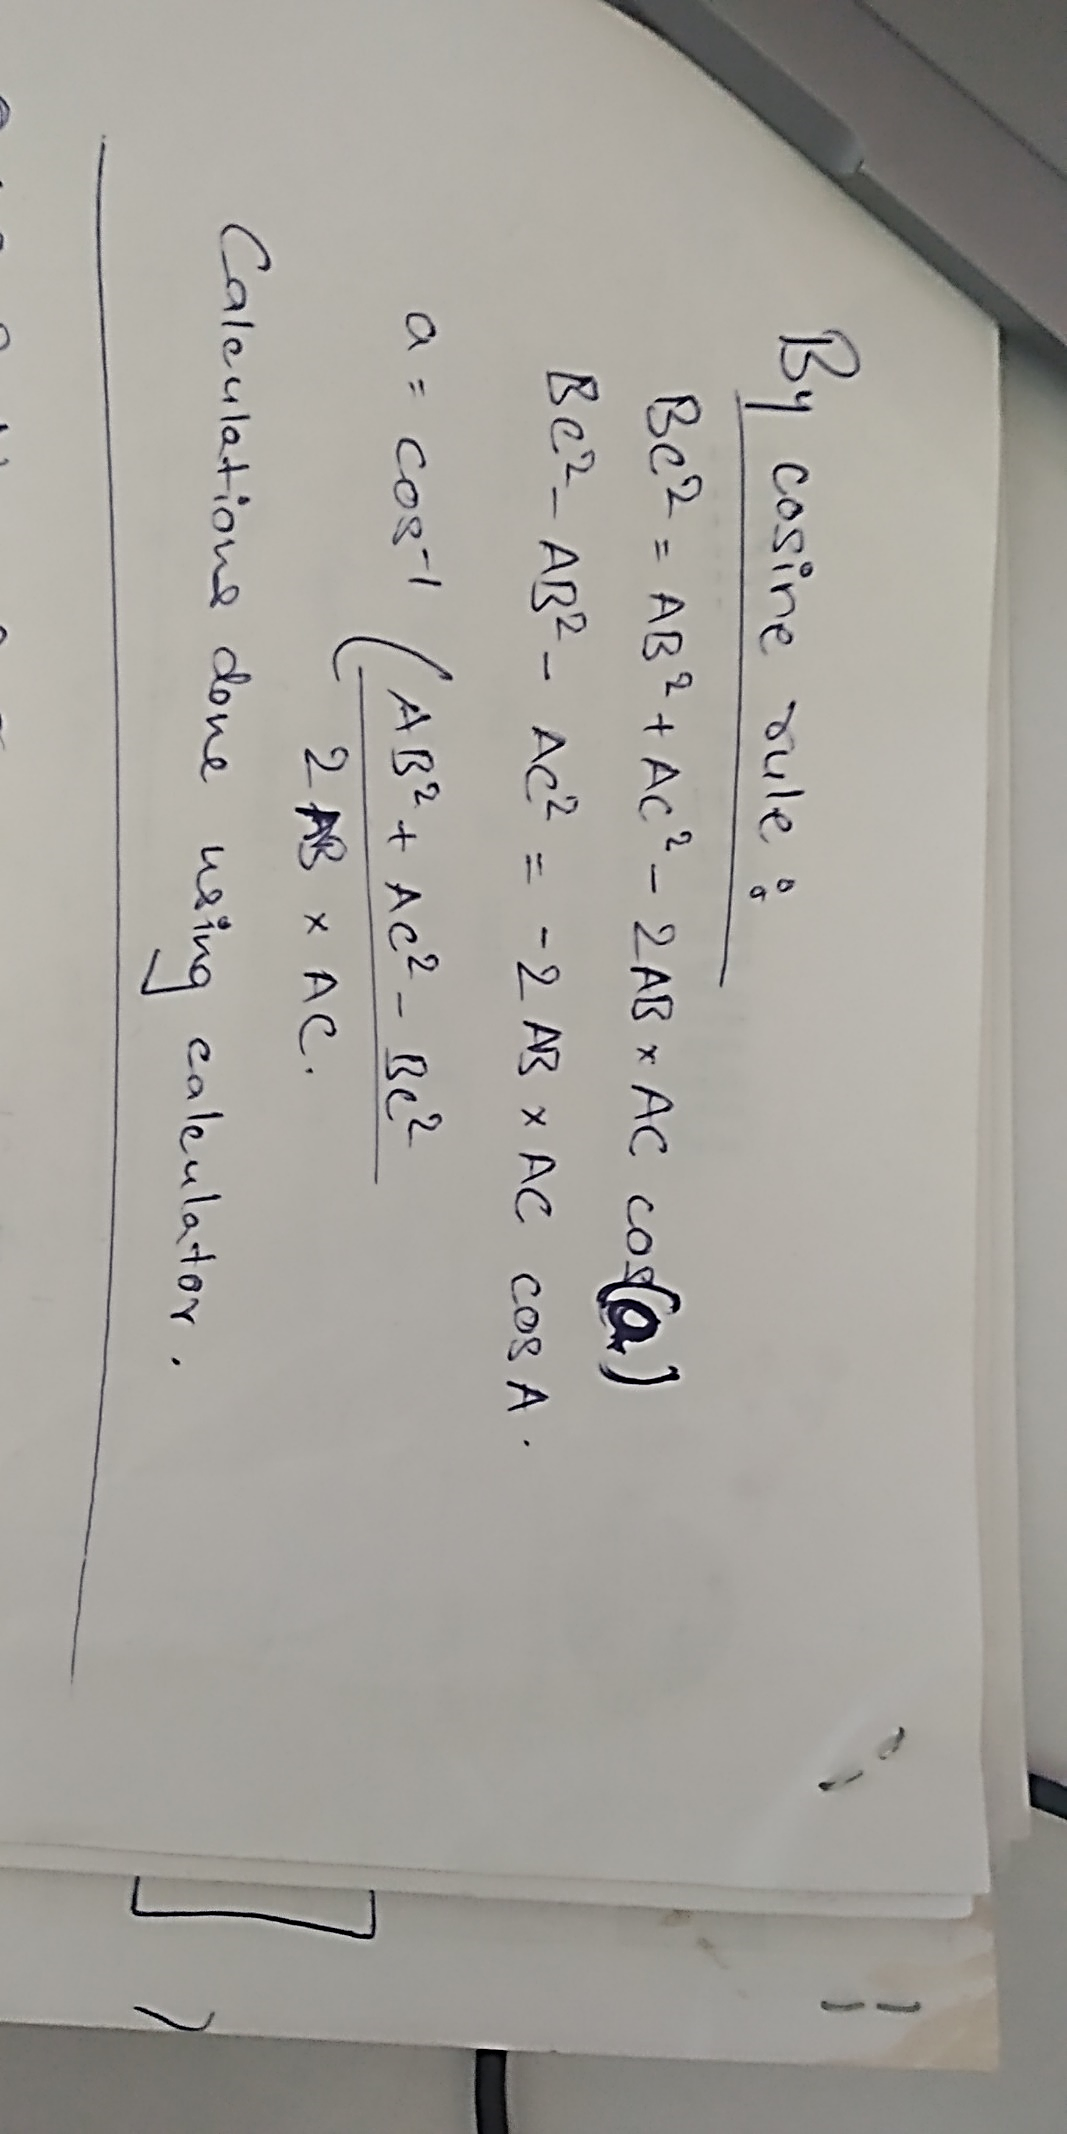 By cosine rule :
BC² = AB² + AC² - 2AB × AC cos(a)
BC² - AB² - AC² = -2AB × AC cos A.
a = cos⁻¹ (AB² + AC² - BC²
2AB × AC.
Calculations done using calculator.